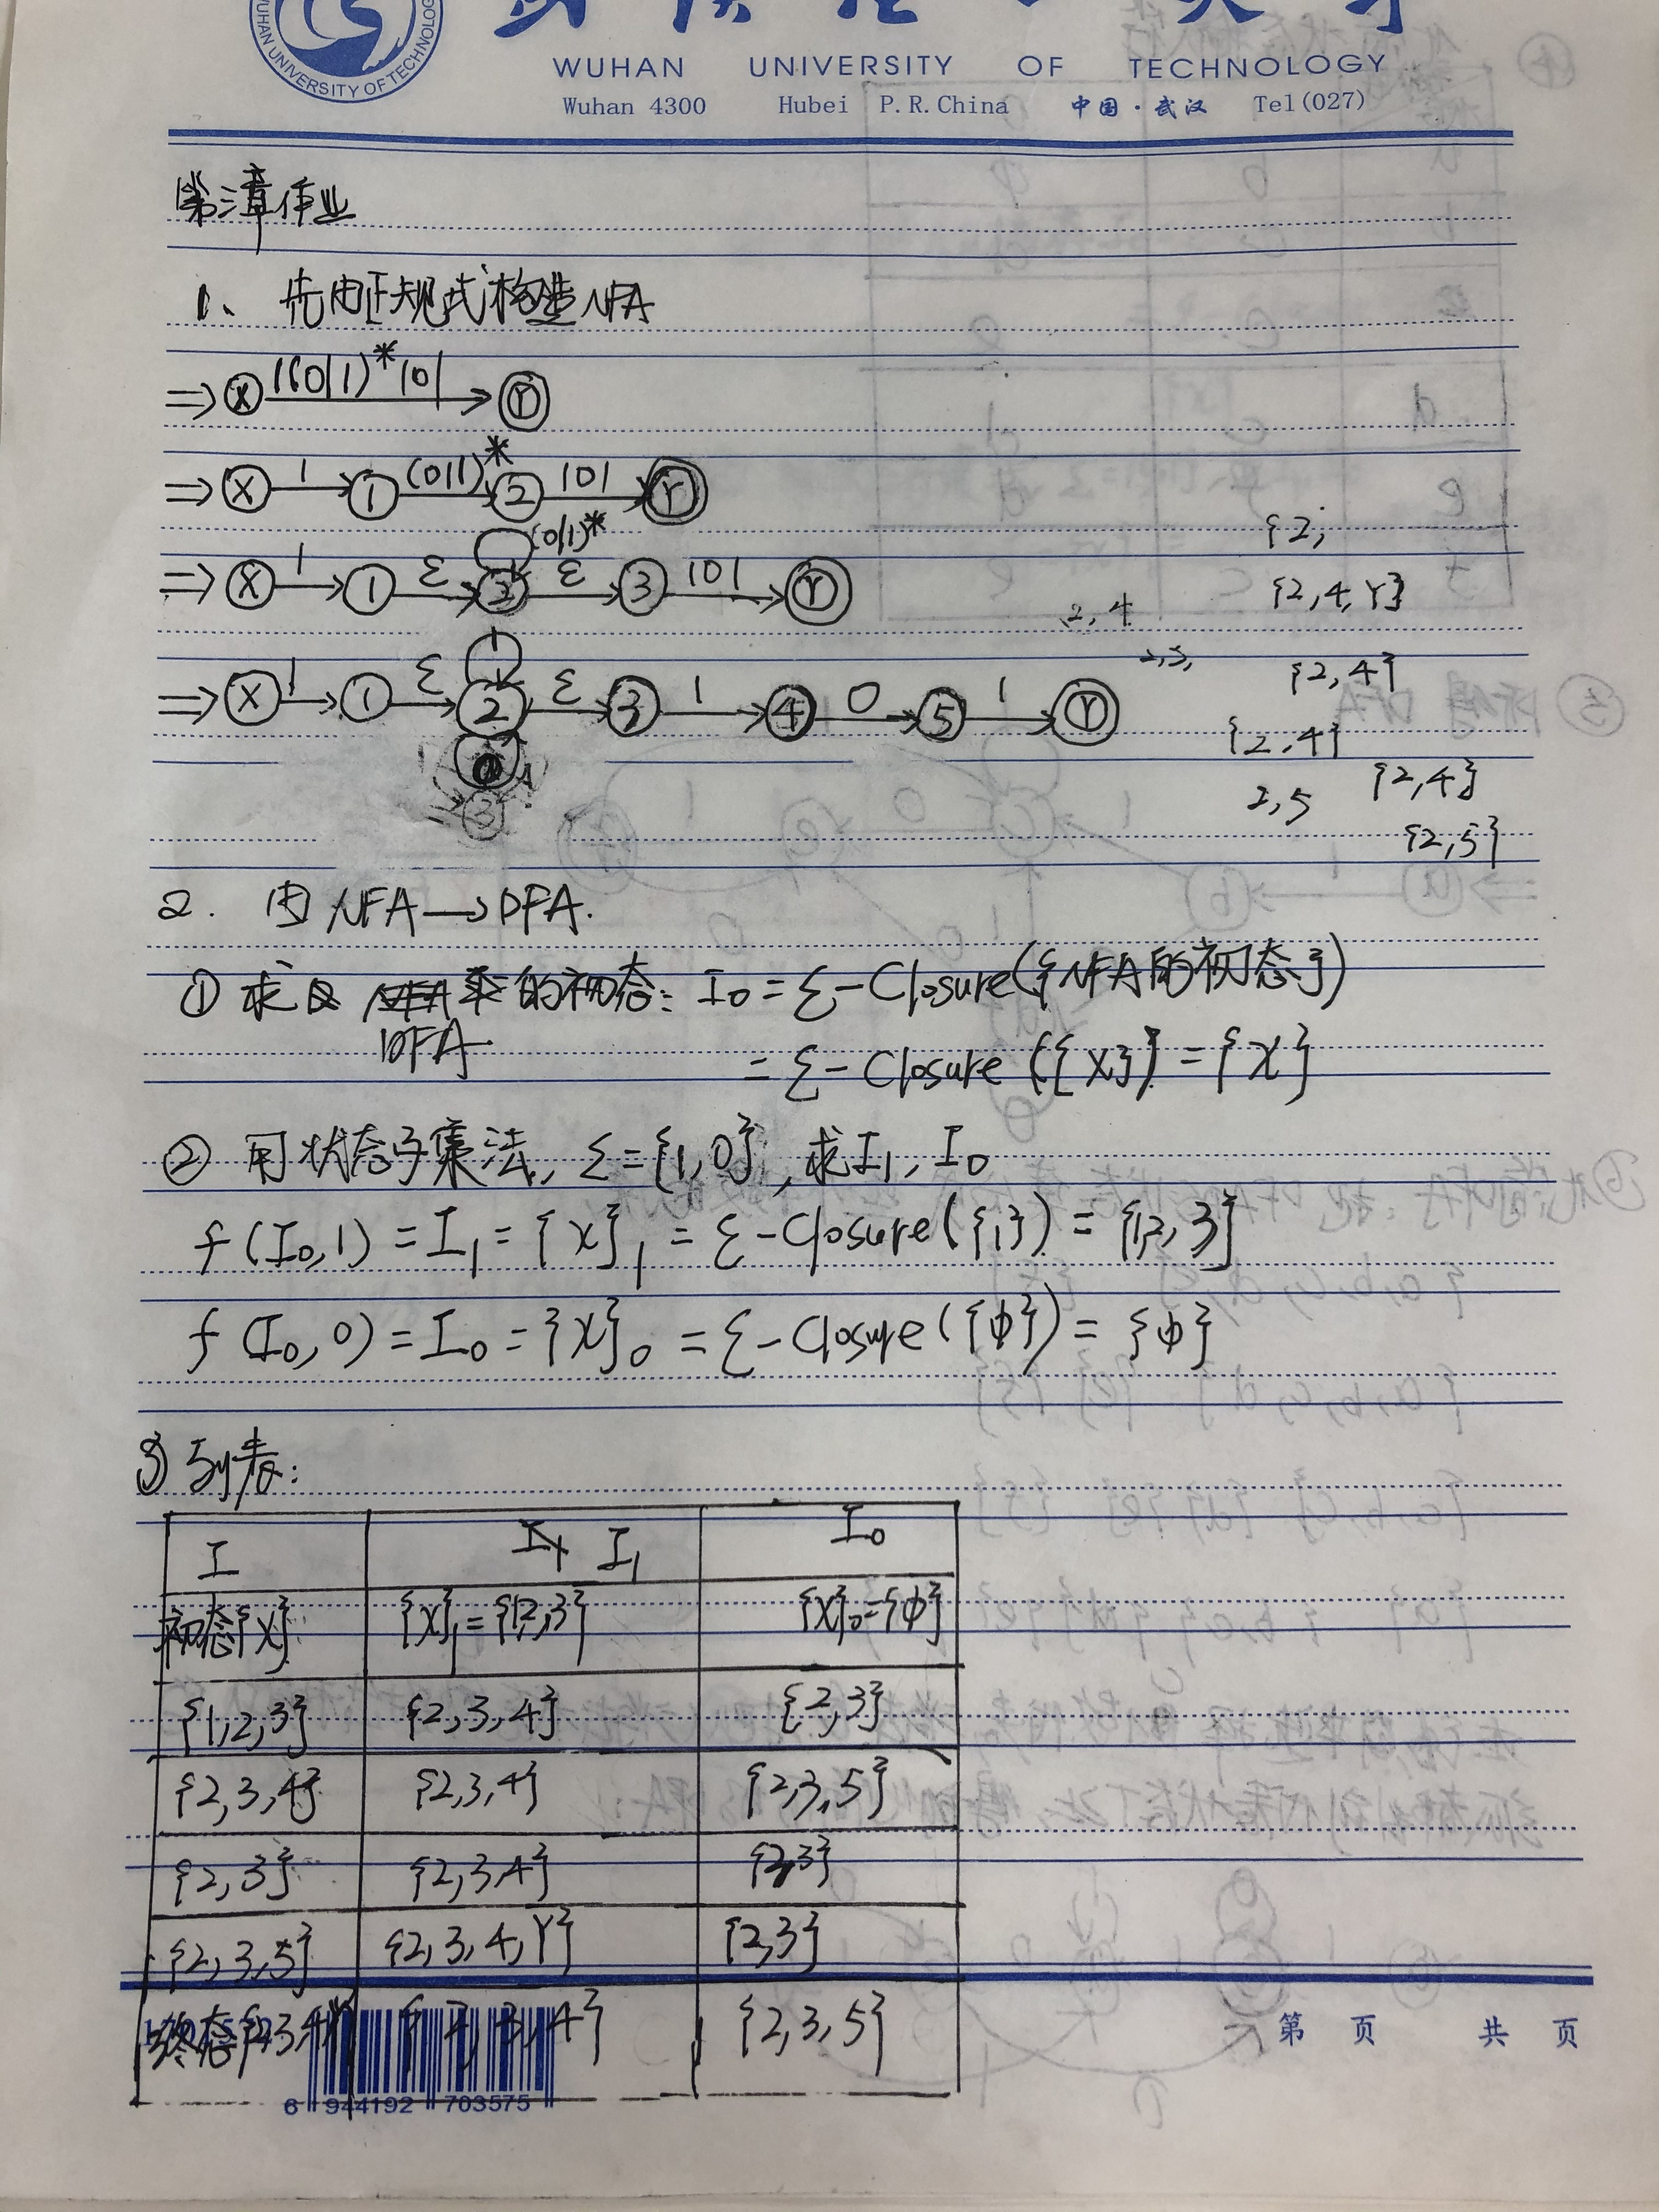 WUHAN UNIVERSITY OF TECHNOLOGY
WUHAN UNIVERSITY OF TECHNOLOGY
Wuhan 4300 Hubei P.R.China 中国·武汉 Tel(027)
第三章作业
1、先由正规式构造NFA
⇒ X 1(0|1)*101 Y
⇒ X 1 1 (0|1)* 2 101 Y
⇒ X 1 1 ε 2 (0|1)* ε 3 101 Y
⇒ X 1 1 ε 2 1 ε 3 1 4 0 5 1 Y
0
{2,
{2,4,Y}
2,4
2,5,
{2,4}
{2,4}
2,5
{2,4}
{2,5}
2. 由NFA→DFA.
① 求 DFA 的初态: I₀=ε-Closure({NFA的初态})
=ε-Closure({X})={X}
② 用状态子集法, Σ={1,0},求I₁,I₀
f(I₀,1)=I₁={X}₁=ε-Closure({1})={1,2,3}
f(I₀,0)=I₀={X}₀=ε-Closure({ϕ})={ϕ}
③ 列表:
I I₁ I₀
初态{X} {X}₁={1,2,3} {X}₀={ϕ}
{1,2,3} {2,3,4} {2,3}
{2,3,4} {2,3,4} {2,3,5}
{2,3} {2,3,4} {2,3}
{2,3,5} {2,3,4,Y} {2,3}
终态{2,3,4,Y} {2,3,4} {2,3,5}
第 页 共 页
6 944192 703575